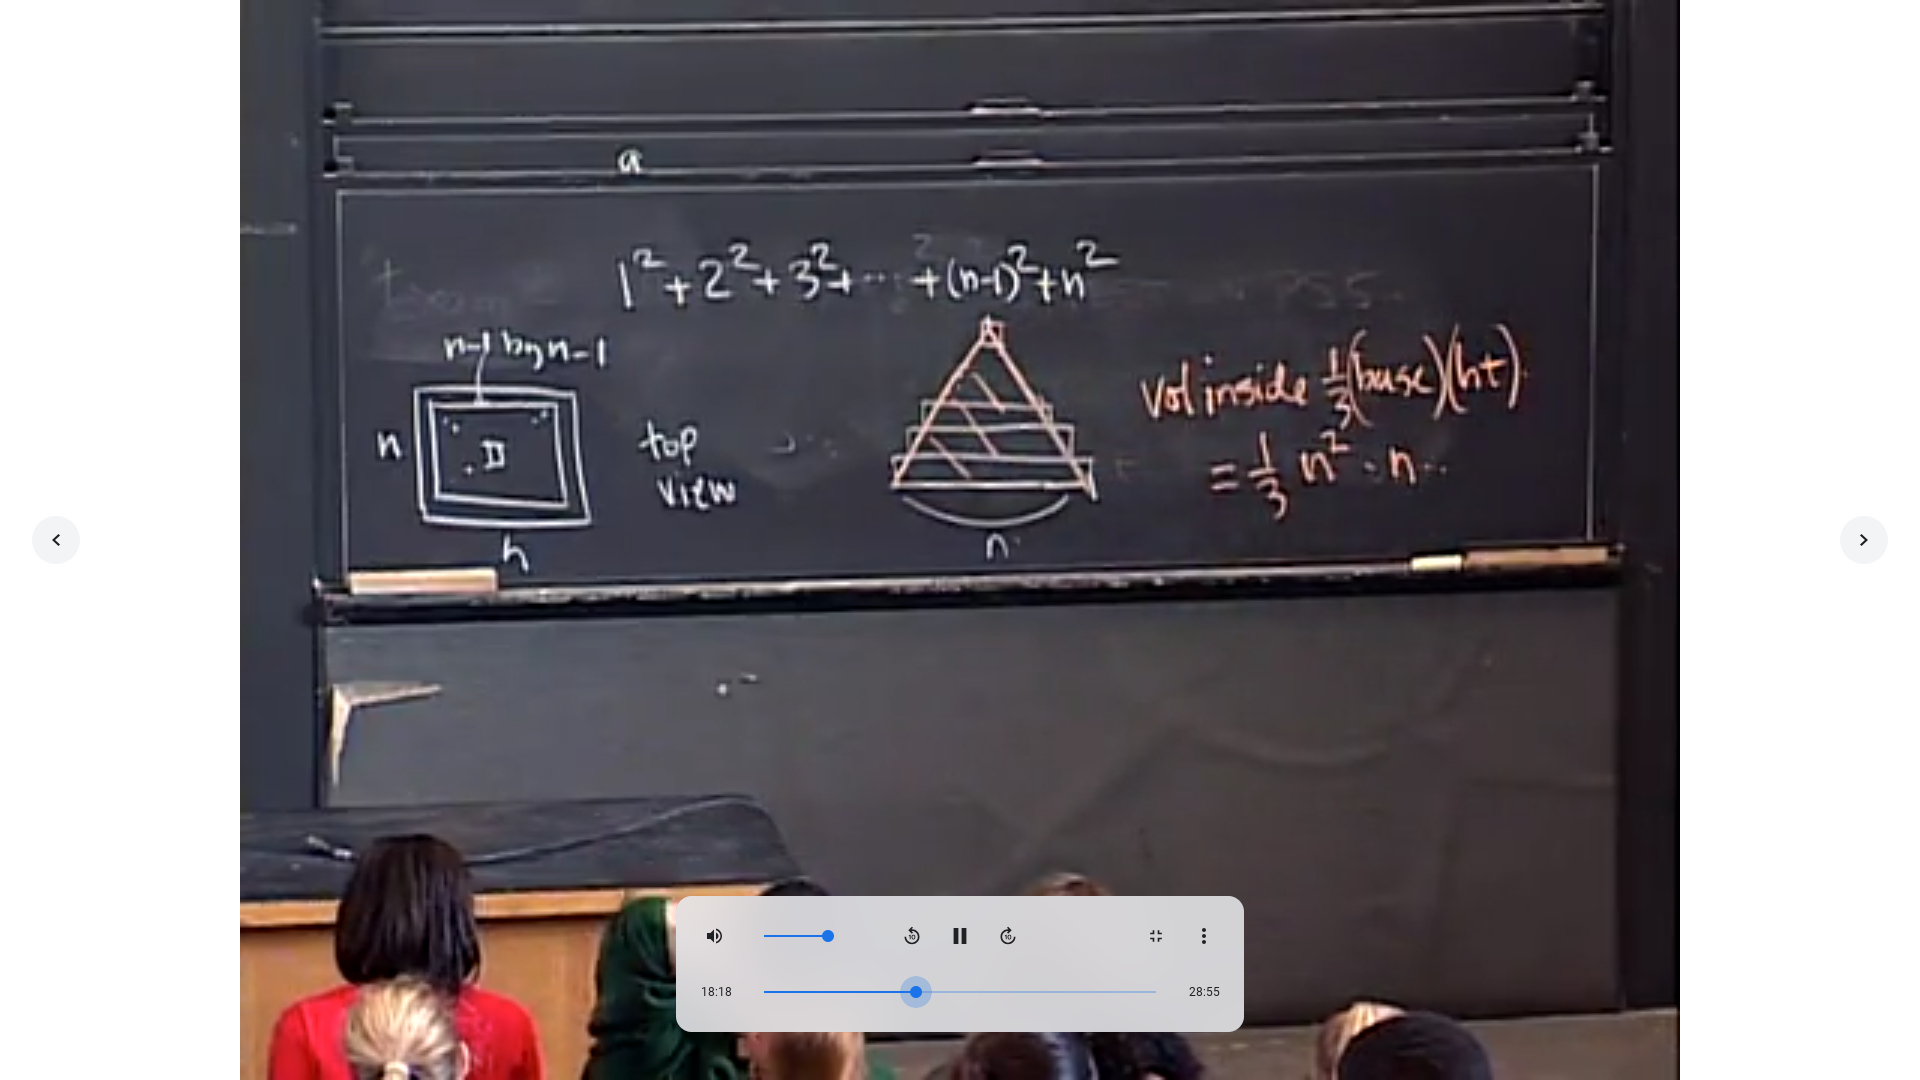 a
1² + 2² + 3² + ··· + (n-1)² + n²
n-1 by n-1
n
top
view
n
n
vol inside 1/3 (base)(ht)
= 1/3 n² · n
18:18
28:55